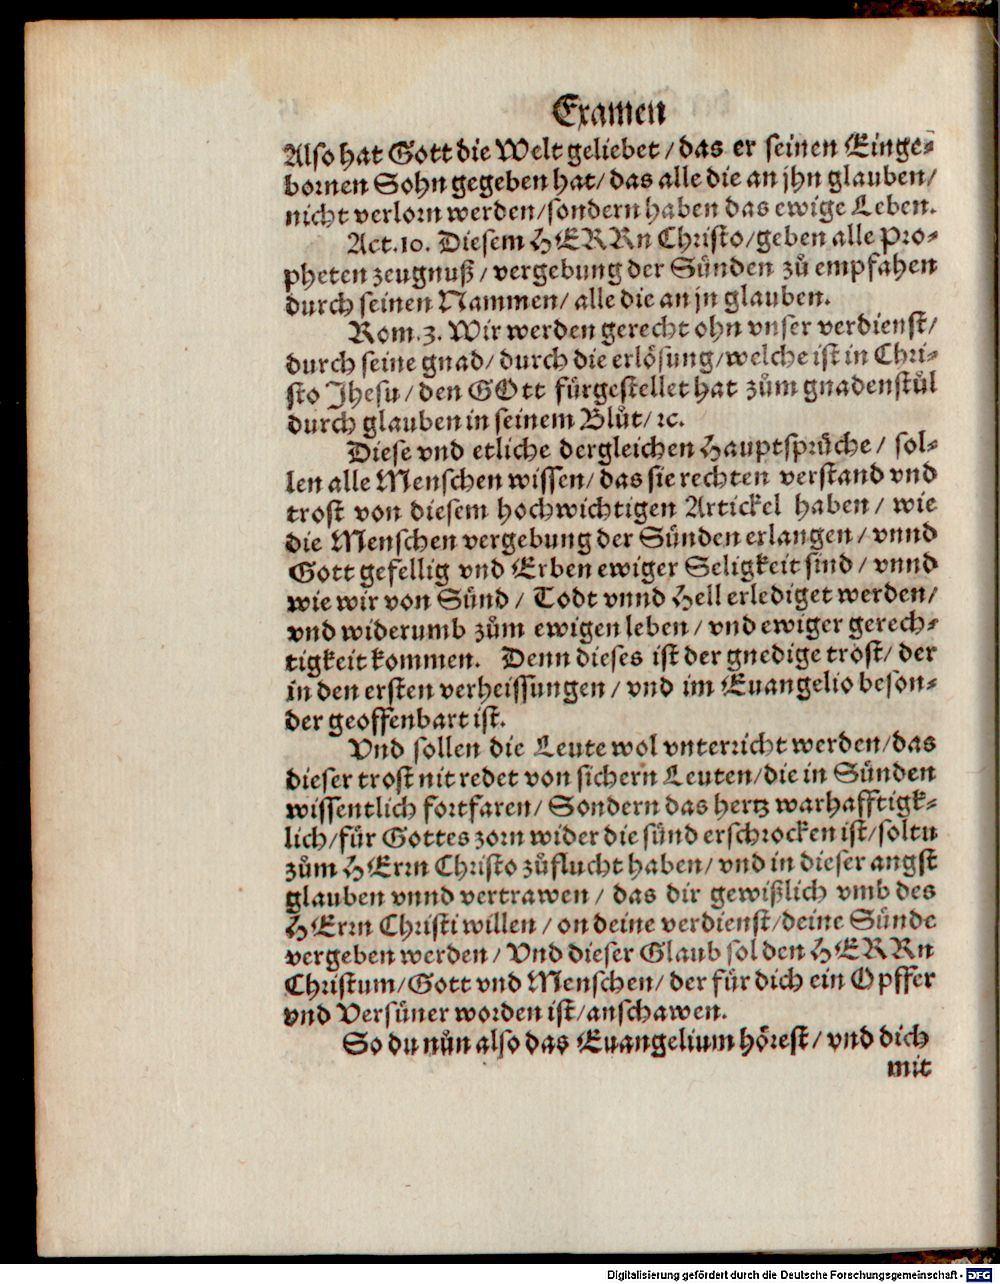 Examen
Also hat Gott die Welt geliebet / das er seinen Einge⸗
bornen Sohn gegeben hat / das alle die an jhn glauben /
nicht verlorn werden / sondern haben das ewige Leben.
Act. 10. Diesem HERRn Christo / geben alle Pro⸗
pheten zeugnuß / vergebung der Sünden zů empfahen
durch seinen Nammen / alle die an jn glauben.
Rom. 3. Wir werden gerecht ohn vnser verdienst /
durch seine gnad / durch die erlösung / welche ist in Chri⸗
sto Jhesu / den GOtt fürgestellet hat zům gnadenstůl
durch glauben in seinem Blůt / ꝛc.
Diese vnd etliche dergleichen Hauptsprüche / sol⸗
len alle Menschen wissen / das sie rechten verstand vnd
trost von diesem hochwichtigen Artickel haben / wie
die Menschen vergebung der Sünden erlangen / vnnd
Gott gefellig vnd Erben ewiger Seligkeit sind / vnnd
wie wir von Sünd / Todt vnnd Hell erlediget werden /
vnd widerumb zům ewigen leben / vnd ewiger gerech⸗
tigkeit kommen. Denn dieses ist der gnedige trost / der
in den ersten verheissungen / vnd im Euangelio beson⸗
der geoffenbart ist.
Vnd sollen die Leute wol vnterricht werden / das
dieser trost nit redet von sichern Leuten / die in Sünden
wissentlich fortfaren / Sondern das hertz warhafftigk⸗
lich / für Gottes zorn wider die sünd erschrocken ist / soltu
zům HErrn Christo zůflucht haben / vnd in dieser angst
glauben vnnd vertrawen / das dir gewißlich vmb des
HErrn Christi willen / on deine verdienst / deine Sünde
vergeben werden / Vnd dieser Glaub sol den HERRn
Christum / Gott vnd Menschen / der für dich ein Opffer
vnd Versüner worden ist / anschawen.
So du nůn also das Euangelium hörest / vnd dich
mit
Digitalisierung gefördert durch die Deutsche Forschungsgemeinschaft - DFG